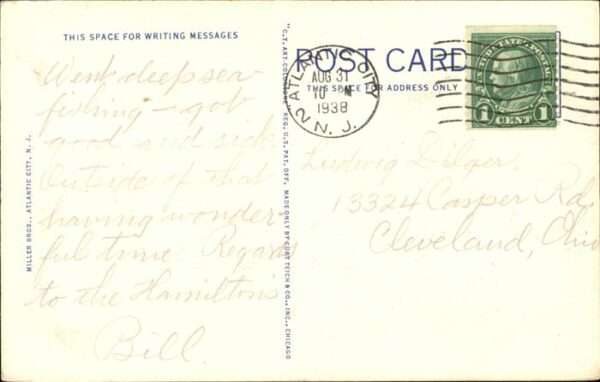 THIS SPACE FOR WRITING MESSAGES
Went deep sea
fishing - got
good and sick.
Outside of that
having wonder-
ful time. Regards
to the Hamiltons
Bill.
MILLER BROS., ATLANTIC CITY, N. J.
"C.T. ART-COLORTONE" REG. U.S. PAT. OFF. MADE ONLY BY CURT TEICH & CO., INC., CHICAGO
POST CARD
THIS SPACE FOR ADDRESS ONLY
ATLANTIC CITY
AUG 31
10 M
1938
2 N. J.
1 CENT 1
Ludwig
13324 Casper Rd.
Cleveland, Ohio